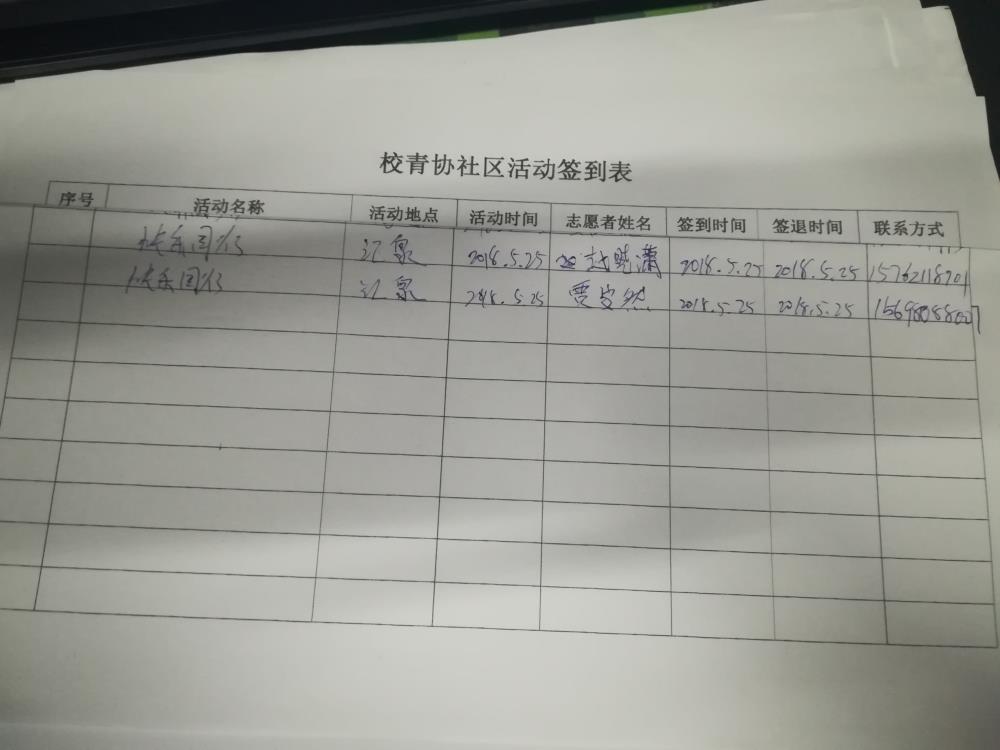 校青协社区活动签到表
序号 活动名称 活动地点 活动时间 志愿者姓名 签到时间 签退时间 联系方式
快乐同行 汇泉 2018.5.25 赵晓潇 2018.5.25 2018.5.25 15762118701
快乐同行 汇泉 2018.5.25 贾安然 2018.5.25 2018.5.25